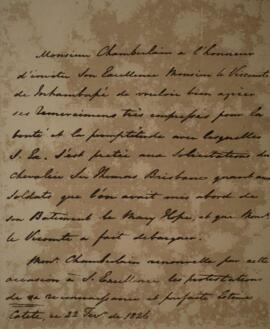 Monsieur Chamberlain a l'honneur
d'inviter Son Excellence Monsieur le Vicomte
de Inhambupé de vouloir bien agréer
ses remercimens très empressés pour la
bonté et la promptitude avec lesquelles
S. Ex. s'est pretée aux Solicitations du
Chevalier Sir Thomas Brisbane quant aux
Soldats que l'on avait mis abord de
son Batiment le Mary Hope, et que Monsr.
le Vicomte a fait debarquer.
Monsr. Chamberlain renouvelle par cette
occasion à S. Excellence les protestations
de sa reconnaissance et parfaite Estime
Catete, ce 22 Fevr. de 1826